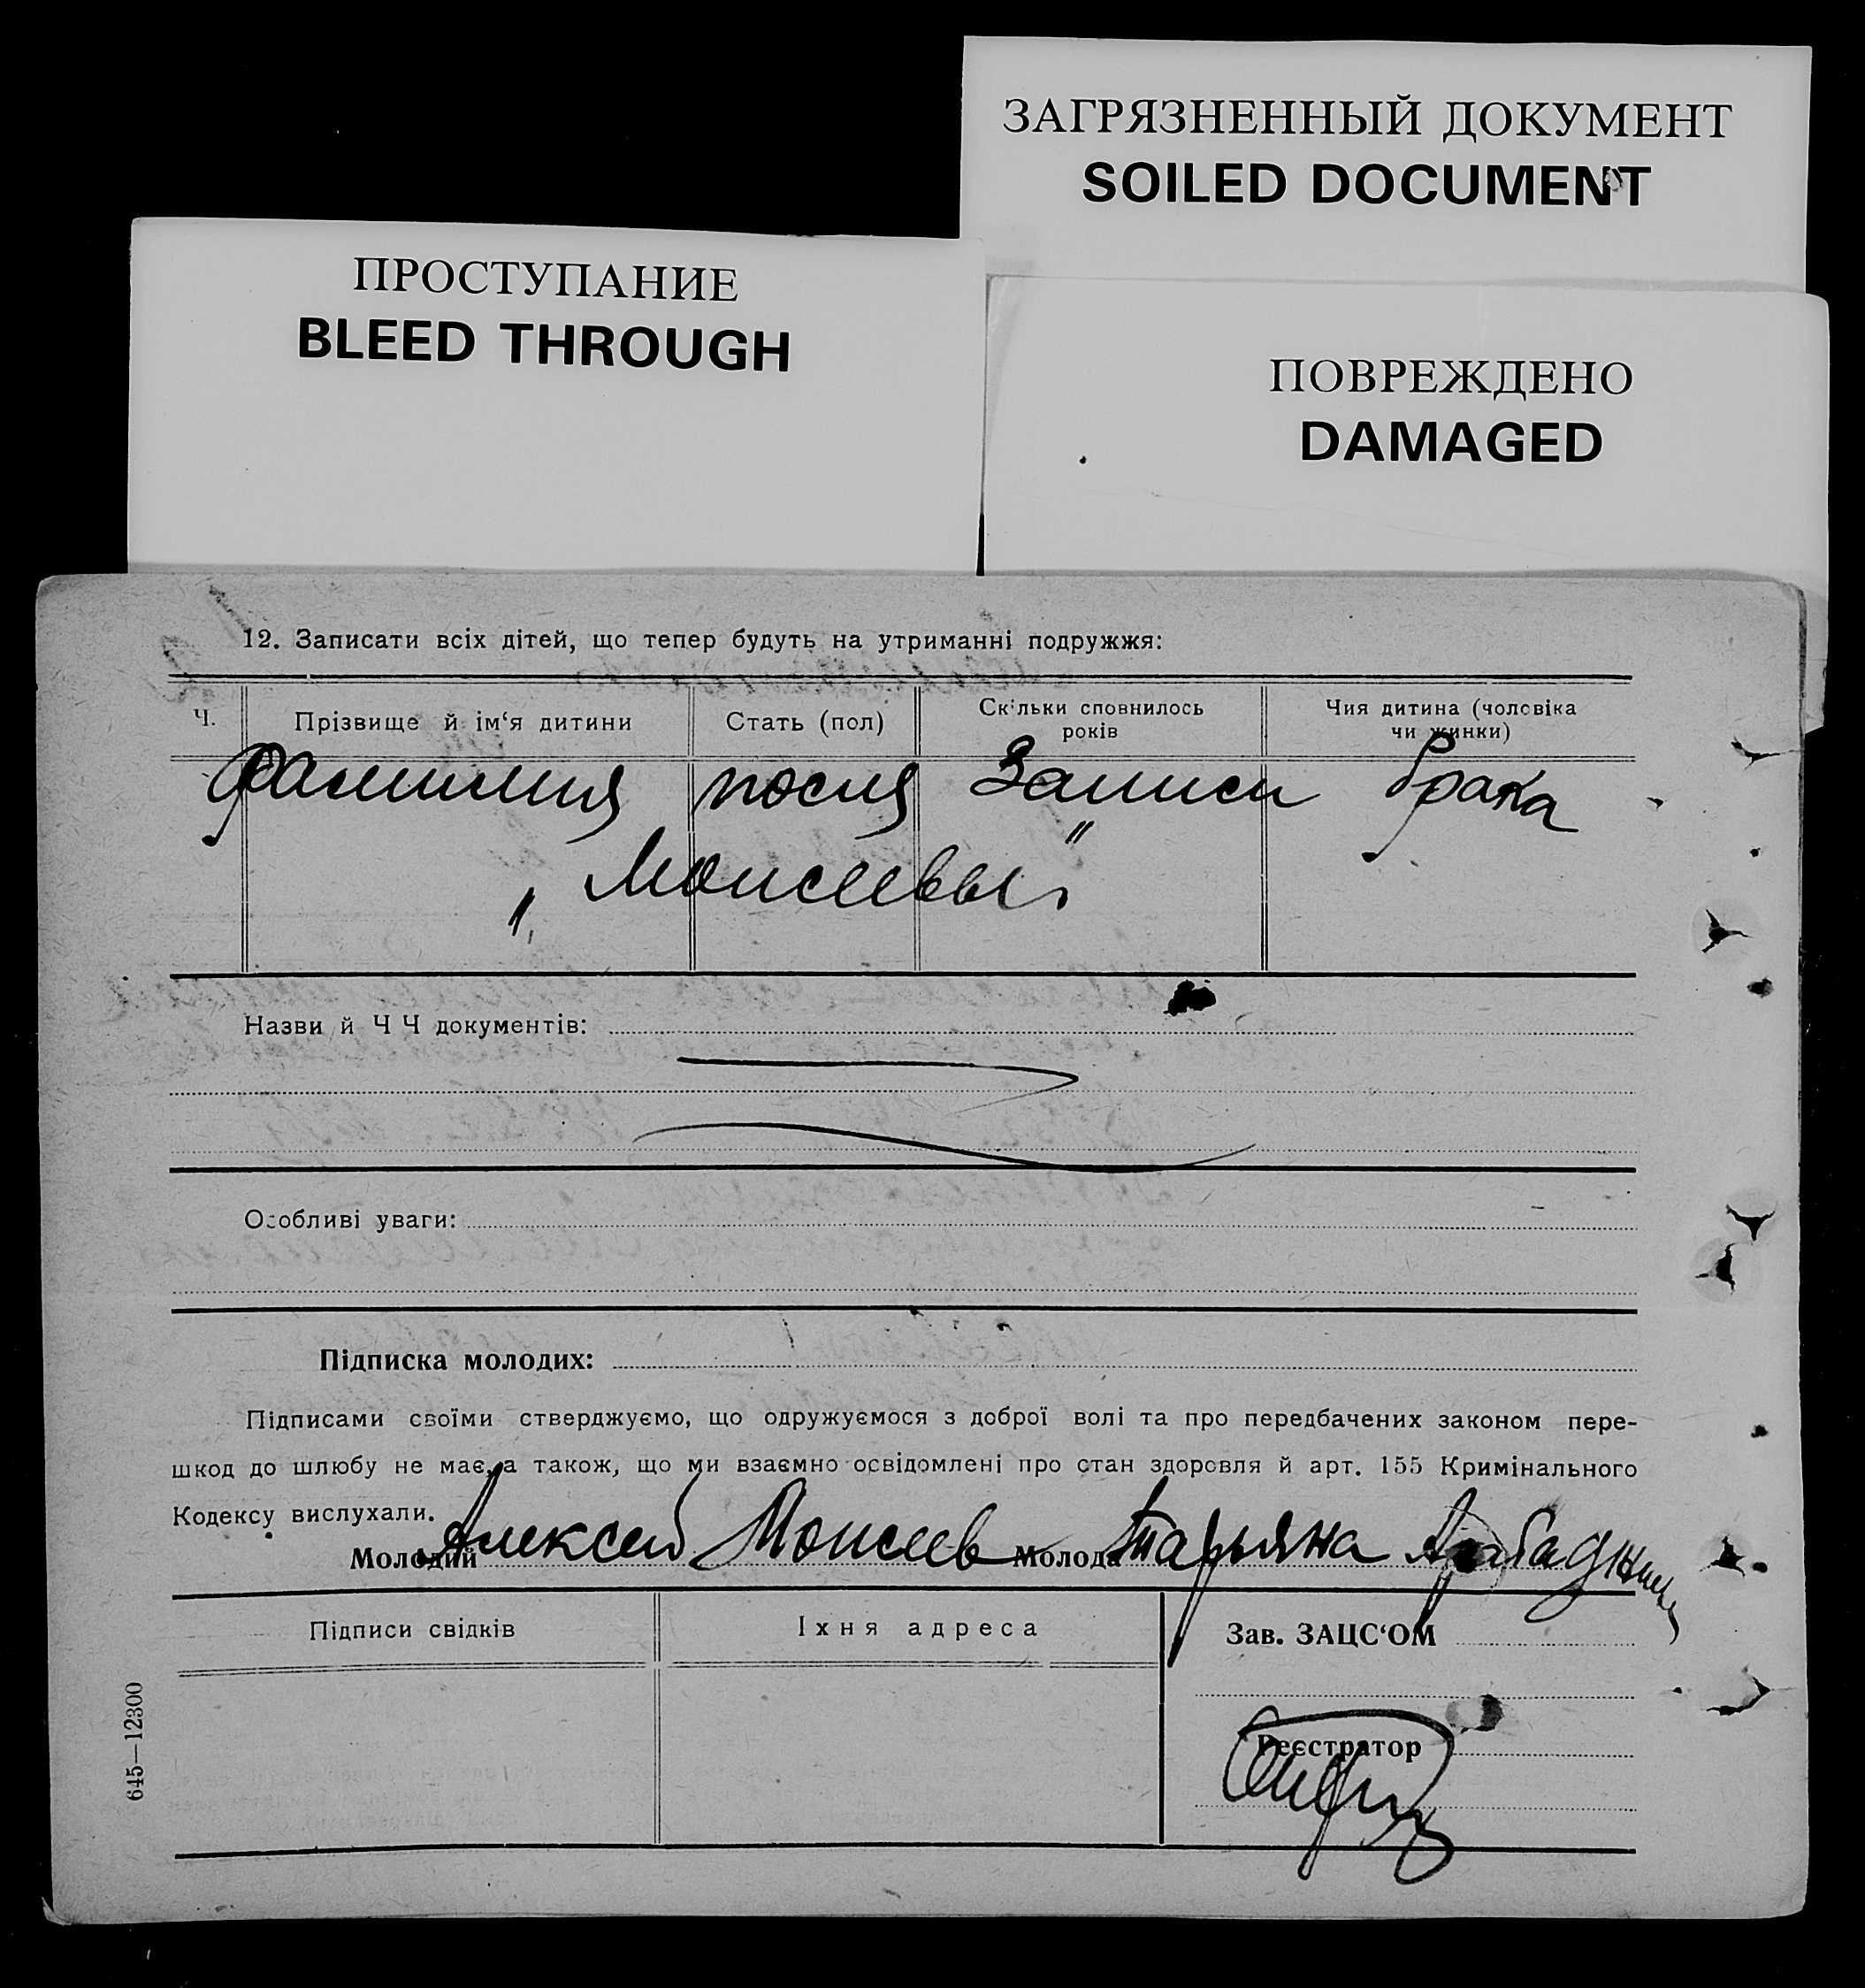 ЗАГРЯЗНЕННЫЙ ДОКУМЕНТ
SOILED DOCUMENT
ПРОСТУПАНИЕ
BLEED THROUGH
ПОВРЕЖДЕНО
DAMAGED
12. Записати всіх дітей, що тепер будуть на утриманні подружжя:
Ч. Прізвище й ім‘я дитини Стать (пол) Скільки сповнилось років Чия дитина (чоловіка чи жинки)
Фамилия после записи брака
„Моисеевы"
Назви й Ч Ч документів:
Особливі уваги:
Підписка молодих:
Підписами своїми стверджуємо, що одружуємося з доброї волі та про передбачених законом пере-
шкод до шлюбу не має, а також, що ми взаємно освідомлені про стан здоровля й арт. 155 Кримінального
Кодексу вислухали.
Молодий Алексей Моисеев Молода Татьяна
Підписи свідків Їхня адреса Зав. ЗАЦС‘ОМ
Реєстратор
645—12300